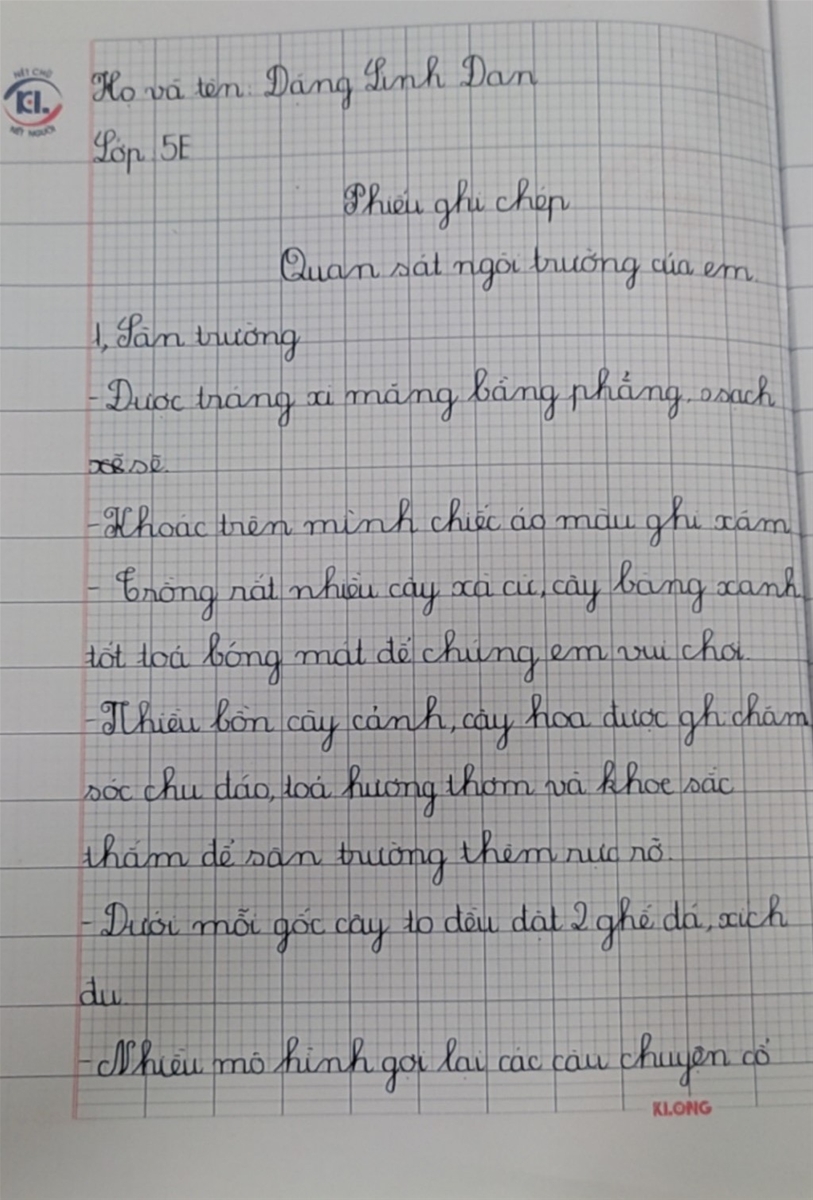 NÉT CHỮ
KL.
NẾT NGƯỜI
Họ và tên: Đặng Linh Đan
Lớp 5E
Phiếu ghi chép
Quan sát ngôi trường của em.
1, Sân trường
- Được tráng xi măng bằng phẳng, sạch
sẽ.
- Khoác trên mình chiếc áo màu ghi xám
- Trồng rất nhiều cây xà cừ, cây bàng xanh
tốt toả bóng mát để chúng em vui chơi.
- Nhiều bồn cây cảnh, cây hoa được gh chăm
sóc chu đáo, toả hương thơm và khoe sắc
thắm để sân trường thêm rực rỡ.
- Dưới mỗi gốc cây to đều đặt 2 ghế đá, xích
đu.
- Nhiều mô hình gợi lại các câu chuyện cổ
KLONG